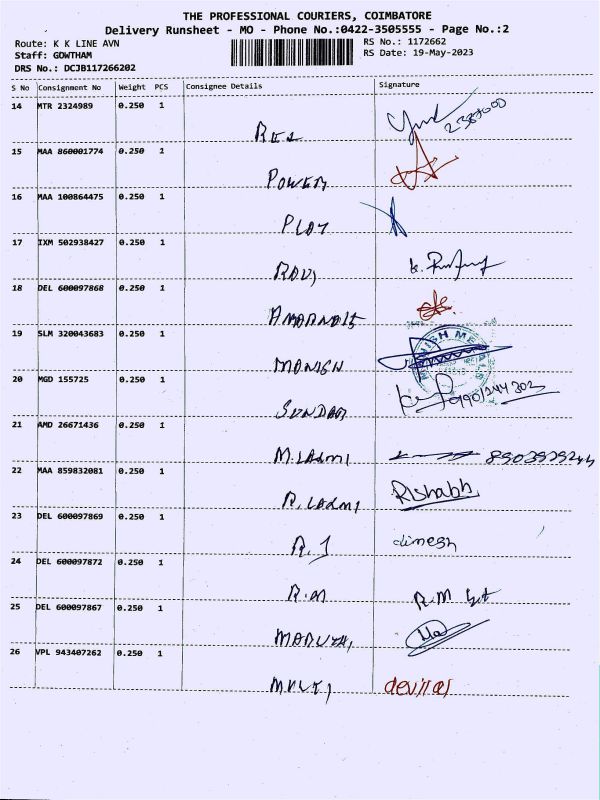 THE PROFESSIONAL COURIERS, COIMBATORE
Delivery Runsheet - MO - Phone No.:0422-3505555 - Page No.:2
Route: K K LINE AVN
RS No.: 1172662
Staff: GOWTHAM
RS Date: 19-May-2023
DRS No.: DCJB117266202
S No Consignment No Weight PCS Consignee Details Signature
14 MTR 2324989 0.250 1
15 MAA 860001774 0.250 1
POWER
16 MAA 100864475 0.250 1
PLAY
17 IXM 502938427 0.250 1
RAVI
18 DEL 600097868 0.250 1
19 SLM 320043683 0.250 1
MANISH METALS
MANISH
20 MGD 155725 0.250 1
SUNDAR 9901244302
21 AMD 26671436 0.250 1
M.LAXMI 8903939244
22 MAA 859832081 0.250 1
Rishabh
R.LAXMI
23 DEL 600097869 0.250 1
dinesh
R.J
24 DEL 600097872 0.250 1
R.M R.M
25 DEL 600097867 0.250 1
26 VPL 943407262 0.250 1